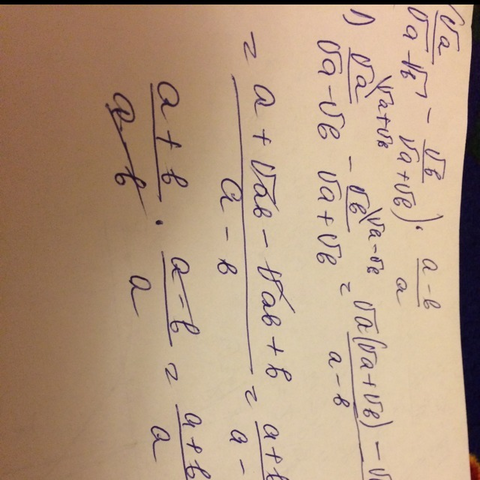 (√a/(√a-√b) - √b/(√a+√b)) · (a-b)/a
1) √a\√a+√b/(√a-√b) - √b\√a-√b/(√a+√b) = (√a(√a+√b) - √
= (a+√ab-√ab+b)/(a-b) = (a+b)/(a-
(a+b)/(a-b) · (a-b)/a = (a+b)/a